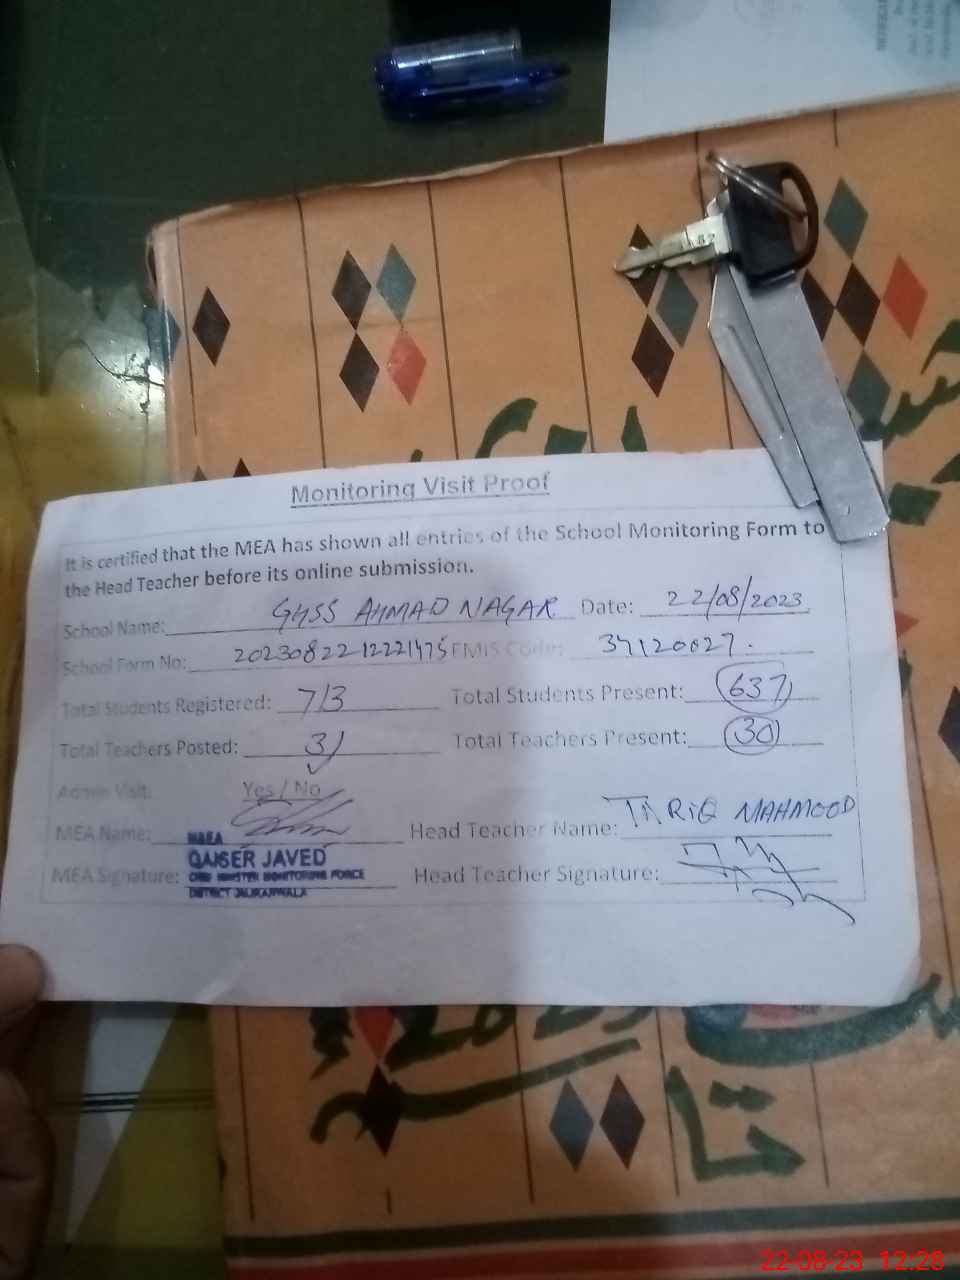 Monitoring Visit Proof
It is certified that the MEA has shown all entries of the School Monitoring Form to
the Head Teacher before its online submission.
School Name: GHSS AHMAD NAGAR Date: 22/08/2023
School Form No: 2023082212221475 EMIS Code: 37120027.
Total Students Registered: 713 Total Students Present: 637
Total Teachers Posted: 31 Total Teachers Present: 30
Admin Visit: Yes / No
MEA Name: Head Teacher Name: TARIQ MAHMOOD
MEA
QAISER JAVED
MEA Signature: CHIEF MINISTER MONITORING FORCE Head Teacher Signature:
DISTRICT
22-08-23 12:28